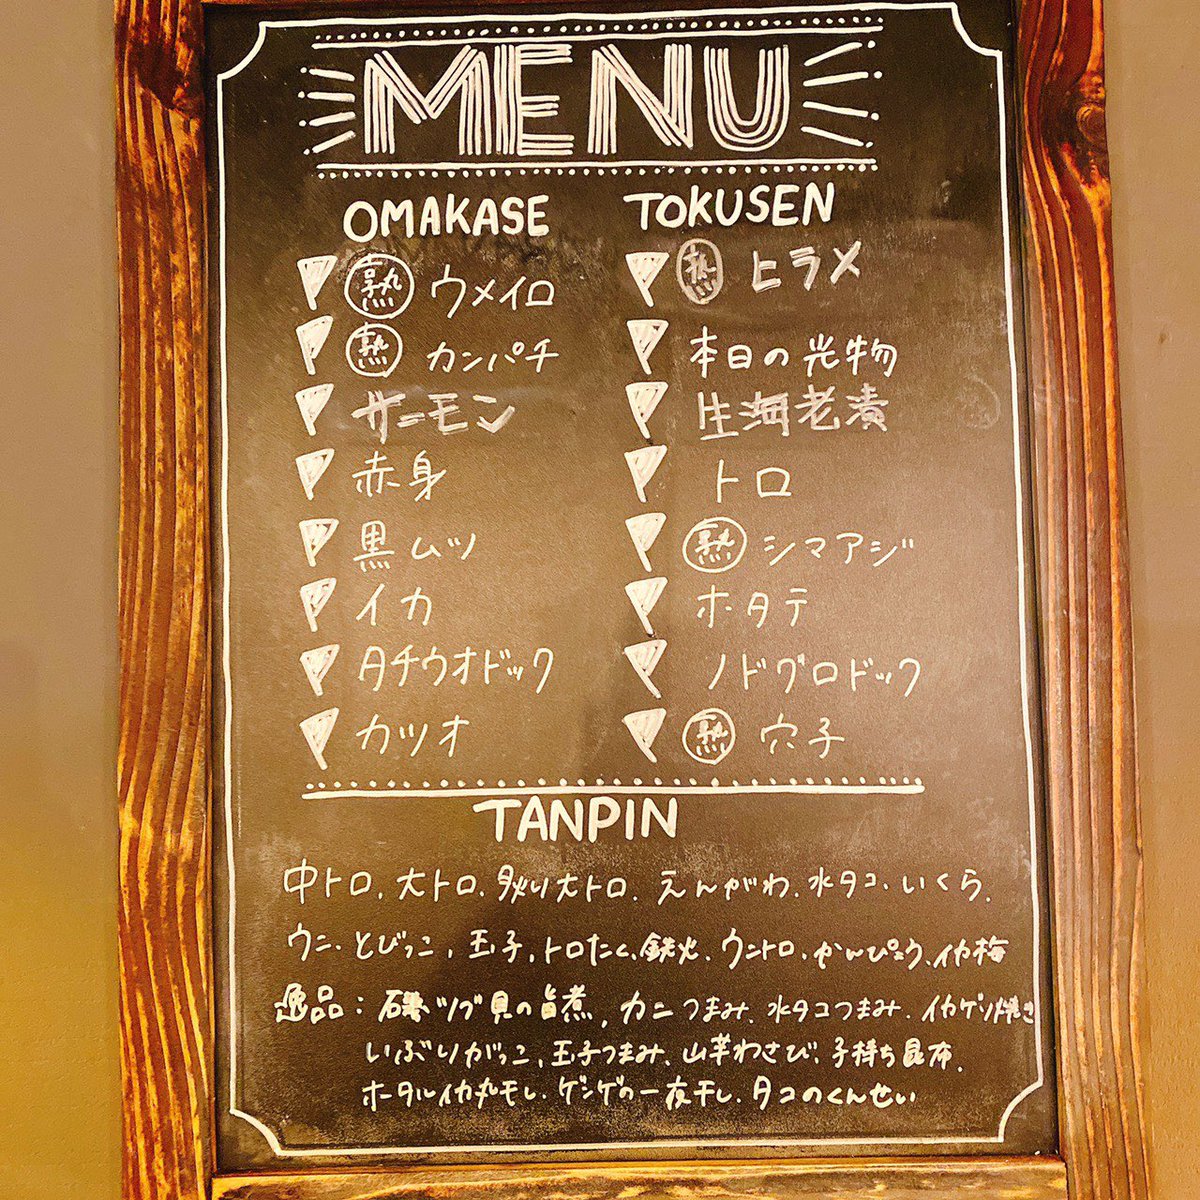 MENU
OMAKASE
熟 ウメイロ
熟 カンパチ
サーモン
赤身
黒ムツ
イカ
タチウオドック
カツオ
TOKUSEN
熟 ヒラメ
本日の光物
生海老漬
トロ
熟 シマアジ
ホタテ
ノドグロドック
熟 穴子
TANPIN
中トロ、大トロ、炙り大トロ、えんがわ、水タコ、いくら、
ウニ、とびっこ、玉子、トロたく、鉄火、ウントロ、かんぴょう、イカ梅
逸品：磯ツブ貝の旨煮、カニつまみ、水タコつまみ、イカゲソ焼き
いぶりがっこ、玉子つまみ、山芋わさび、子持ち昆布、
ホタルイカ丸干し、ゲンゲの一夜干し、タコのくんせい